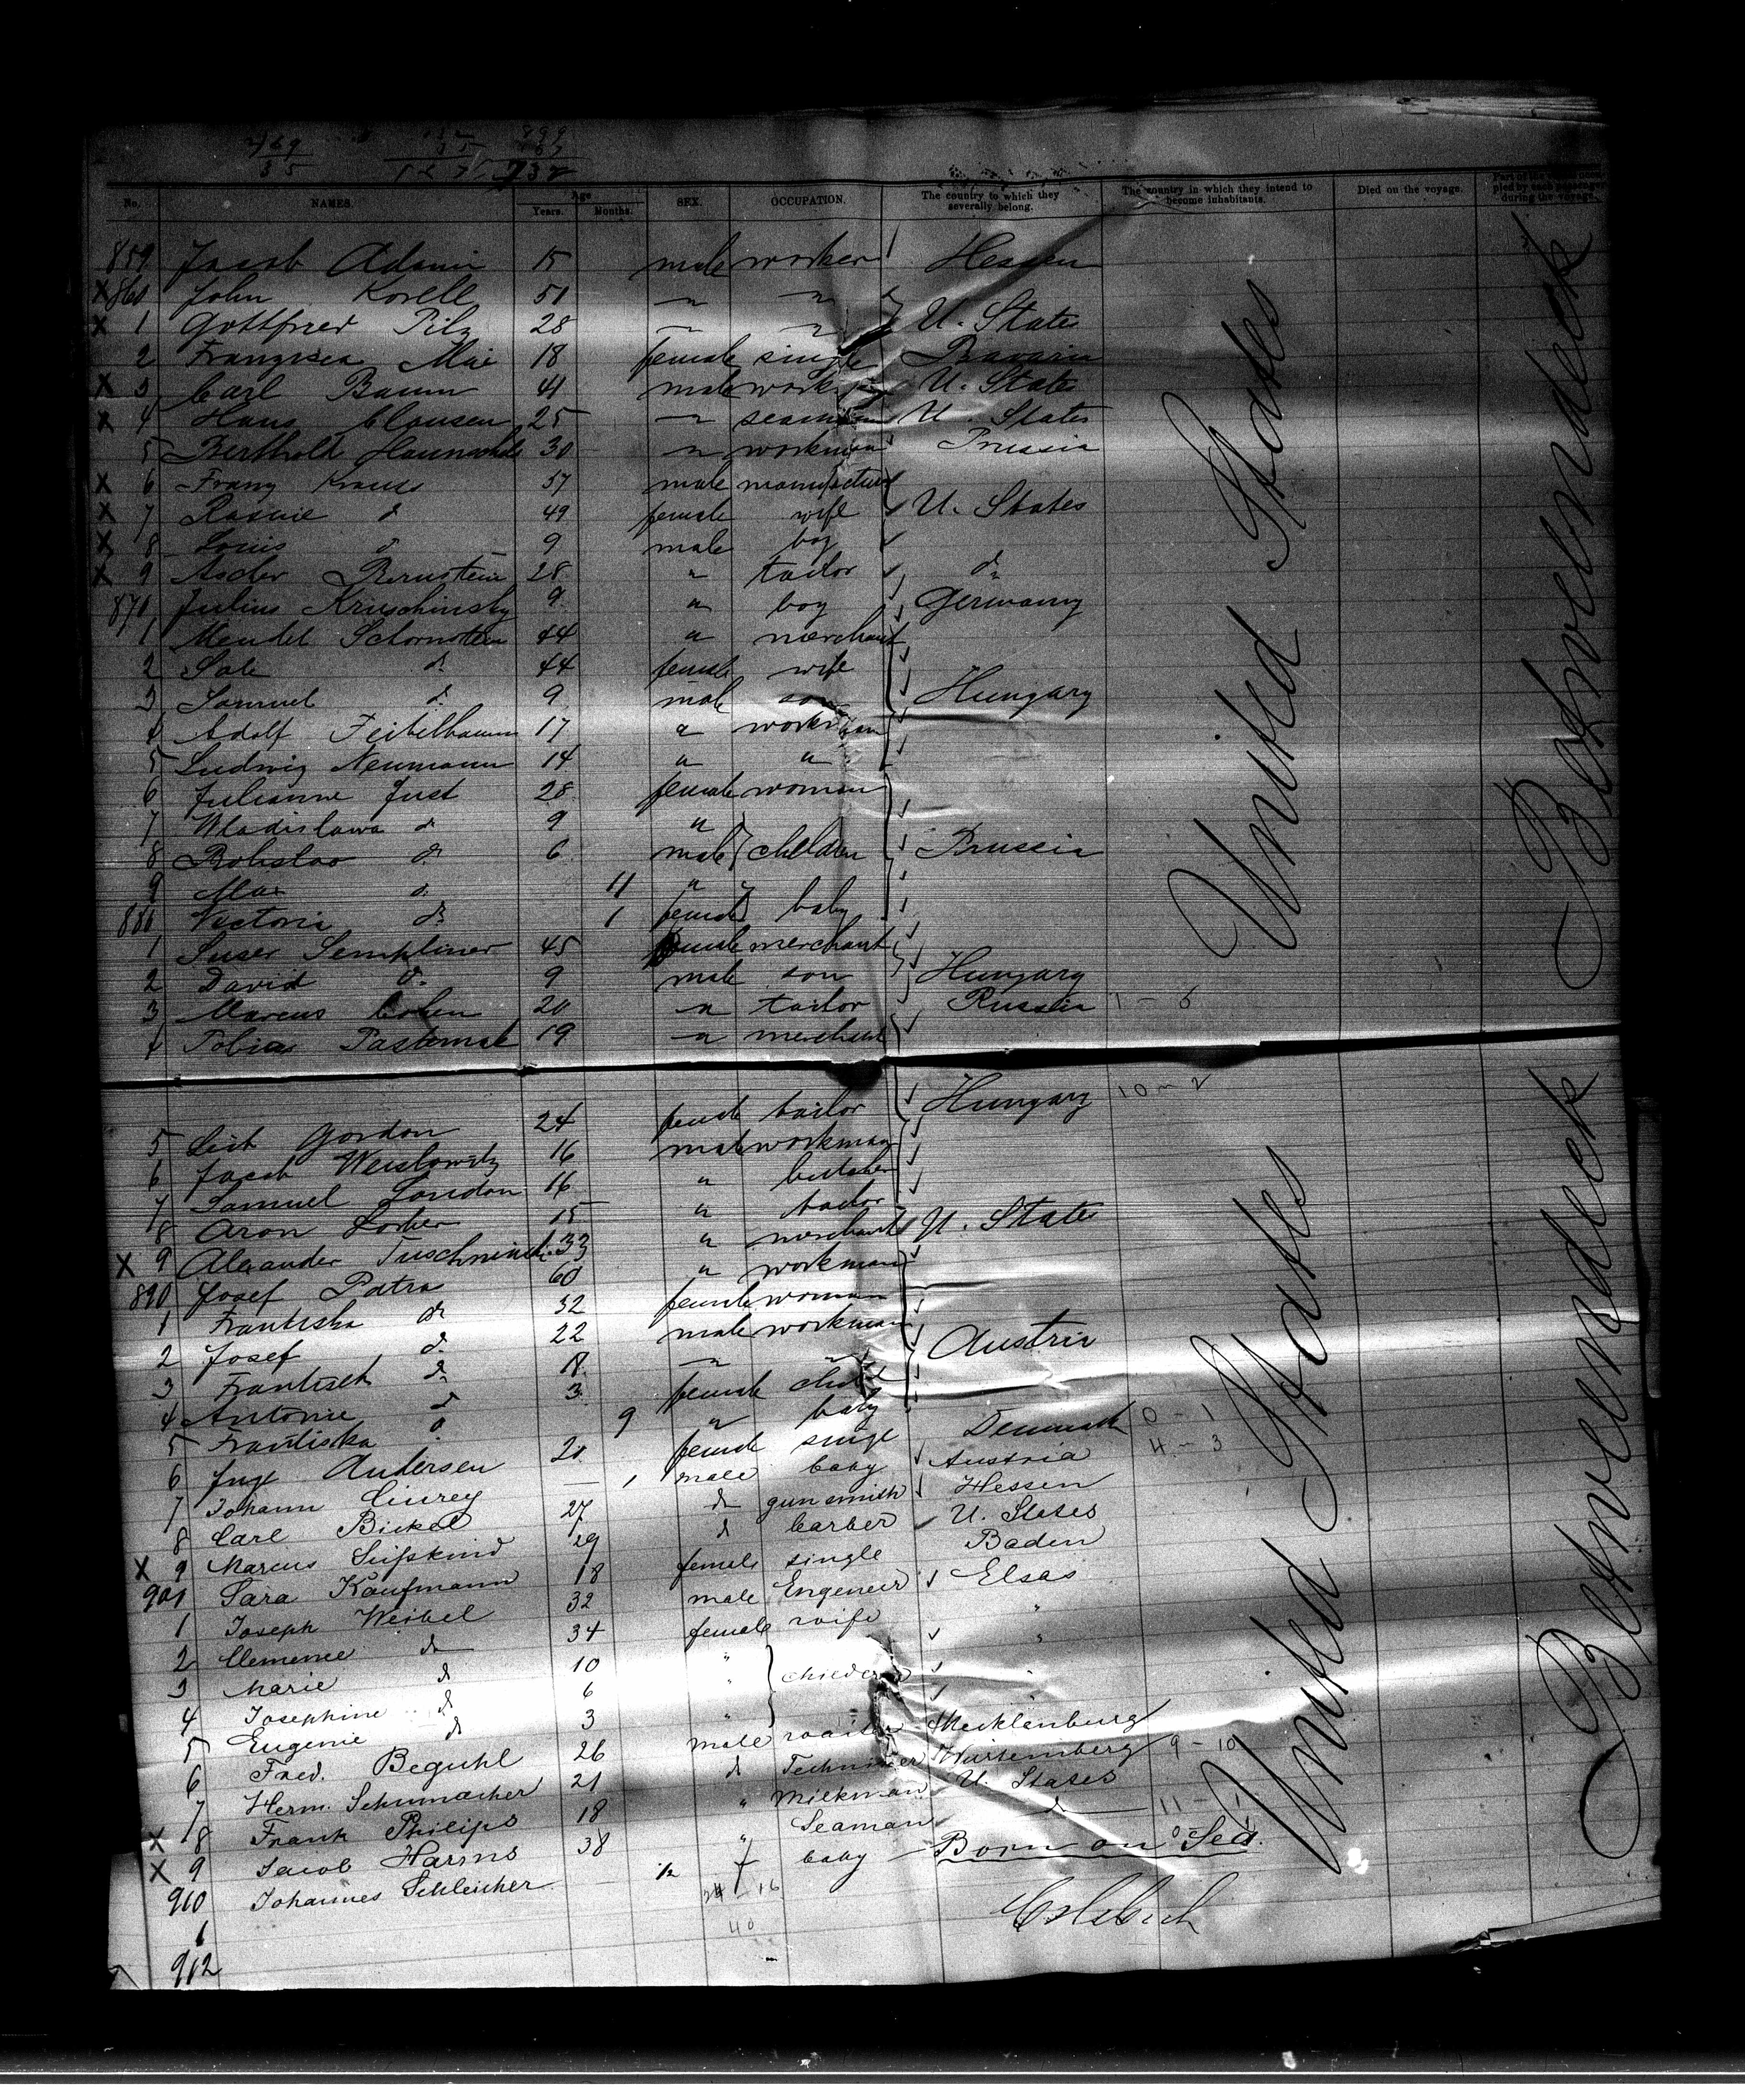 469 899
35 167
732
No. NAMES. Age Years. Months. SEX. OCCUPATION. The country to which they severally belong. The country in which they intend to become inhabitants. Died on the voyage. Part of the vessel occupied by each passenger during the voyage.
859 Jacob Adami 15 male worker Hessen
X 860 John Korell 51 " "
X 1 Gottfried Pilz 28 " " U. States
2 Franzisca Mai 18 female single Bavaria
X 3 Carl Baum 41 male workman U. States
X 4 Hans Clausen 25 " seaman U. States
5 Berthold 30 " workman Prussia
X 6 Franz Kraus 57 male manufacturer
X 7 Rosalie d 49 female wife U. States
X 8 Louis d 9 male boy
X 9 Ascher Bernstein 28 " tailor do
870 Julius Kruschinsky 9 " boy Germany
1 Mendel Schornstein 44 " merchant
2 Sale do 44 female wife
3 Samuel do 9 male son Hungary
4 Adolf Feibelbaum 17 " workman
5 Ludwig Neumann 14 " "
6 Julianne Just 28 female woman
7 Wladislawa do 9 "
8 Boleslav do 6 male children Prussia
9 Max d. 11 "
880 Victoria do 1 female baby
1 Suser Sempliner 45 female merchant
2 David d. 9 male son Hungary
3 Marcus Cohen 20 " tailor Russia 1 - 6
4 Tobias Pasternak 19 " merchant
5 Leib Gordon 24 female tailor Hungary 10 - 2
6 Jacob Weislowitz 16 male workman
7 Samuel London 16 " butcher
8 Aron Lorber 15 " tailor
X 9 Alexander Tuschninski 33 " merchant U. States
890 Josef Patra 60 " workman
1 Frantiska do 32 female woman
2 Josef d. 22 male workman
3 Frantisek do 18 " " Austria
4 Antonie d 3 female child
5 Frantiska d. 9 " baby
6 Inge Andersen 20 female single Denmark 0 - 1
7 Johann Cinrey — 1 male baby Austria 4 - 3
8 Carl Bickel 27 do gunsmith Hessen
X 9 Marcus Süfskind 29 d barber U. States
901 Sara Kaufmann 18 female single Baden
1 Joseph Weibel 32 male Engeneir Elsas
2 Clemence do 34 female wife "
3 Marie d 10 " "
4 Josephine d 6 " children "
5 Eugenie d 3 "
6 Fred. Beguhl 26 male waiter Mecklenburg
7 Herm. Schumacher 21 d Techniker Würtemberg 9 - 10
X 8 Frank Philips 18 " Milkman U. States
X 9 Jacob Harms 38 " Seaman — d — 11 - 1
910 Johannes Schleicher 1/2 f baby Born on Sea.
1 24 - 16
912 40
United States
United States
Betweendeck
Betweendeck